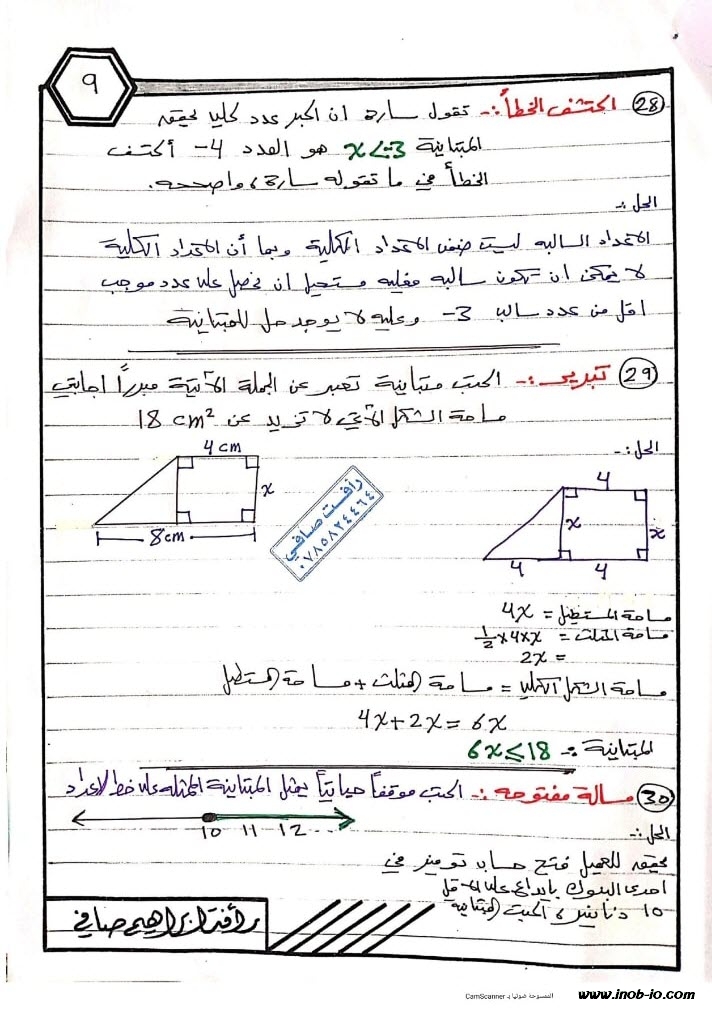 9
28 اكتشف الخطأ :- تقول سارة ان اكبر عدد كلي يحقق
المتباينة x<-3 هو العدد 4- أكتشف
الخطأ في ما تقوله سارة، واصححه.
الحل :-
الاعداد السالبه ليست ضمن الاعداد الكلية وبما أن الاعداد الكلية
لا يمكن ان تكون سالبه فعليه مستحيل ان نحصل على عدد موجب
اقل من عدد سالب 3- وعليه لا يوجد حل للمتباينة
29 تبرير :- اكتب متباينة تعبر عن الجملة الآتية مبرراً اجابتي
مساحة الشكل الآتي لا تزيد عن 18 cm²
الحل :-
4 cm
x
8 cm
4
x
x
4
4
رأفت صافي
٠٧٨٥٨٢٤٤٦٤
مساحة المستطيل = 4x
مساحة المثلث = ½×4×x
= 2x
مساحة الشكل الكلية = مساحة المثلث + مساحة المستطيل
4x+2x = 6x
المتباينة :- 6x≤18
30 مسالة مفتوحه :- اكتب موقفاً حياتياً يمثل المتباينة الممثله على خط الاعداد
10 11 12 ...
الحل :-
يحق للعميل فتح حساب توفير في
احدى البنوك بايداع على الاقل
10 دنانير، اكتب المتباينة
رأفت ابراهيم صافي
الممسوحة ضوئيا بـ CamScanner
www.inob-io.com